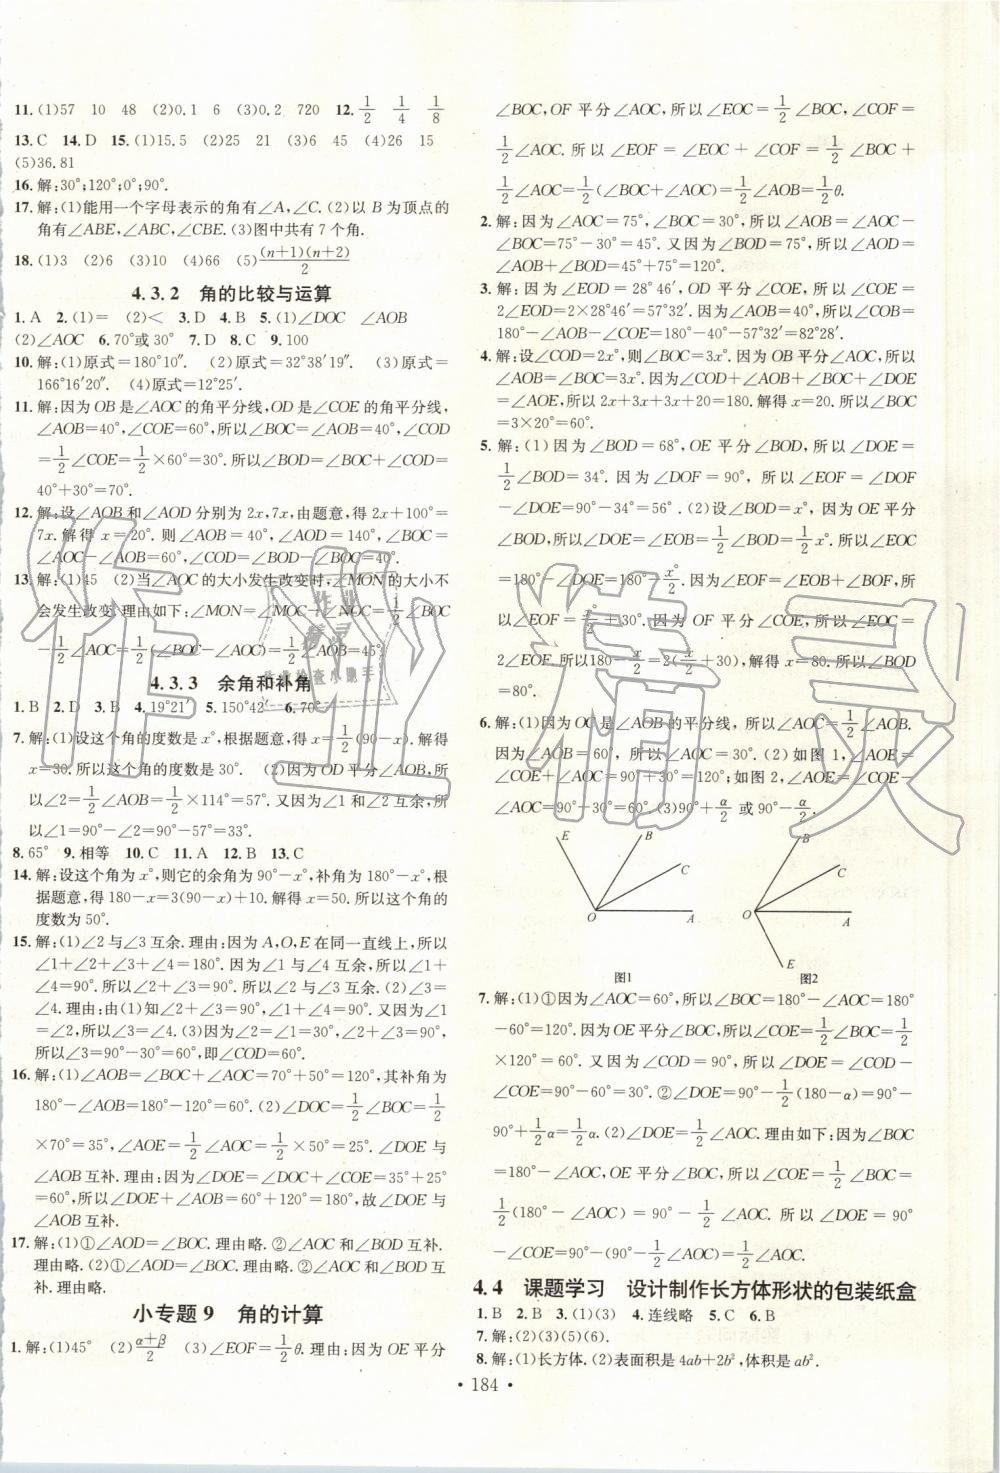 11. (1)57　10　48　(2)0.1　6　(3)0.2　720　12. 1/2　1/4　1/8
13. C　14. D　15. (1)15.5　(2)25　21　(3)6　45　(4)26　15
(5)36.81
16. 解:30°;120°;0°;90°.
17. 解:(1)能用一个字母表示的角有∠A,∠C. (2)以 B 为顶点的
角有∠ABE,∠ABC,∠CBE. (3)图中共有 7 个角.
18. (1)3　(2)6　(3)10　(4)66　(5)(n+1)(n+2)/2
4.3.2　角的比较与运算
1. A　2. (1)=　(2)<　3. D　4. B　5. (1)∠DOC　∠AOB
(2)∠AOC　6. 70°或 30°　7. D　8. C　9. 100
10. 解:(1)原式=180°10″.　(2)原式=32°38′19″.　(3)原式=
166°16′20″.　(4)原式=12°25′.
11. 解:因为 OB 是∠AOC 的角平分线,OD 是∠COE 的角平分线,
∠AOB=40°,∠COE=60°,所以∠BOC=∠AOB=40°,∠COD
=1/2∠COE=1/2×60°=30°. 所以∠BOD=∠BOC+∠COD=
40°+30°=70°.
12. 解:设∠AOB 和∠AOD 分别为 2x,7x,由题意,得 2x+100°=
7x. 解得 x=20°. 则∠AOB=40°,∠AOD=140°,∠BOC=
∠AOC-∠AOB=60°,∠COD=∠BOD-∠BOC=40°.
13. 解:(1)45　(2)当∠AOC 的大小发生改变时,∠MON 的大小不
会发生改变. 理由如下:∠MON=∠MOC+∠NOC=1/2∠BOC
-1/2∠AOC=1/2(∠BOC-∠AOC)=1/2∠AOB=45°.
4.3.3　余角和补角
1. B　2. D　3. B　4. 19°21′　5. 150°42′　6. 70°
7. 解:(1)设这个角的度数是 x°,根据题意,得 x=1/2(90-x). 解得
x=30. 所以这个角的度数是 30°.　(2)因为 OD 平分∠AOB,所
以∠2=1/2∠AOB=1/2×114°=57°. 又因为∠1 和∠2 互余,所
以∠1=90°-∠2=90°-57°=33°.
8. 65°　9. 相等　10. C　11. A　12. B　13. C
14. 解:设这个角为 x°,则它的余角为 90°-x°,补角为 180°-x°,根
据题意,得 180-x=3(90-x)+10. 解得 x=50. 所以这个角的
度数为 50°.
15. 解:(1)∠2 与∠3 互余. 理由:因为 A,O,E 在同一直线上,所以
∠1+∠2+∠3+∠4=180°. 因为∠1 与∠4 互余,所以∠1+
∠4=90°. 所以∠2+∠3=90°. 所以∠2 与∠3 互余. (2)∠3=
∠4. 理由:由(1)知∠2+∠3=90°,∠1+∠4=90°. 又因为∠1
=∠2,所以∠3=∠4. (3)因为∠2=∠1=30°,∠2+∠3=90°,
所以∠3=90°-30°=60°,即∠COD=60°.
16. 解:(1)∠AOB=∠BOC+∠AOC=70°+50°=120°,其补角为
180°-∠AOB=180°-120°=60°. (2)∠DOC=1/2∠BOC=1/2
×70°=35°,∠AOE=1/2∠AOC=1/2×50°=25°. ∠DOE 与
∠AOB 互补. 理由:因为∠DOE=∠DOC+∠COE=35°+25°
=60°,所以∠DOE+∠AOB=60°+120°=180°,故∠DOE 与
∠AOB 互补.
17. 解:(1)①∠AOD=∠BOC. 理由略. ②∠AOC 和∠BOD 互补.
理由略. (2)①∠AOD=∠BOC. 理由略. ②∠AOC 和∠BOD 互
补. 理由略.
小专题 9　角的计算
1. 解:(1)45°　(2)α+β/2　(3)∠EOF=1/2θ. 理由:因为 OE 平分
∠BOC,OF 平分∠AOC,所以∠EOC=1/2∠BOC,∠COF=
1/2∠AOC. 所以∠EOF=∠EOC+∠COF=1/2∠BOC+
1/2∠AOC=1/2(∠BOC+∠AOC)=1/2∠AOB=1/2θ.
2. 解:因为∠AOC=75°,∠BOC=30°,所以∠AOB=∠AOC-
∠BOC=75°-30°=45°. 又因为∠BOD=75°,所以∠AOD=
∠AOB+∠BOD=45°+75°=120°.
3. 解:因为∠EOD=28°46′,OD 平分∠COE,所以∠COE=
2∠EOD=2×28°46′=57°32′. 因为∠AOB=40°,所以∠COB=
180°-∠AOB-∠COE=180°-40°-57°32′=82°28′.
4. 解:设∠COD=2x°,则∠BOC=3x°. 因为 OB 平分∠AOC,所以
∠AOB=∠BOC=3x°. 因为∠COD+∠AOB+∠BOC+∠DOE
=∠AOE,所以 2x+3x+3x+20=180. 解得 x=20. 所以∠BOC
=3×20°=60°.
5. 解:(1)因为∠BOD=68°,OE 平分∠BOD,所以∠DOE=
1/2∠BOD=34°. 因为∠DOF=90°,所以∠EOF=∠DOF
-∠DOE=90°-34°=56°. (2)设∠BOD=x°,因为 OE 平分
∠BOD,所以∠DOE=∠EOB=1/2∠BOD=1/2x°. 所以∠EOC
=180°-∠DOE=180°-x°/2. 因为∠EOF=∠EOB+∠BOF,所
以∠EOF=x°/2+30°. 因为 OF 平分∠COE,所以∠EOC=
2∠EOF. 所以180-x/2=2(x/2+30),解得 x=80. 所以∠BOD
=80°.
6. 解:(1)因为 OC 是∠AOB 的平分线,所以∠AOC=1/2∠AOB.
因为∠AOB=60°,所以∠AOC=30°. (2)如图 1,∠AOE=
∠COE+∠AOC=90°+30°=120°;如图 2,∠AOE=∠COE-
∠AOC=90°-30°=60°. (3)90°+α/2 或 90°-α/2.
E　B　C　O　A
B　C　O　A　E
图1　图2
7. 解:(1)①因为∠AOC=60°,所以∠BOC=180°-∠AOC=180°
-60°=120°. 因为 OE 平分∠BOC,所以∠COE=1/2∠BOC=1/2
×120°=60°. 又因为∠COD=90°,所以∠DOE=∠COD-
∠COE=90°-60°=30°. ②∠DOE=90°-1/2(180-α)=
90°+1/2α=1/2α. (2)∠DOE=1/2∠AOC. 理由如下:因为∠BOC
=180°-∠AOC,OE 平分∠BOC,所以∠COE=1/2∠BOC=
1/2(180°-∠AOC)=90°-1/2∠AOC. 所以∠DOE=90°
-∠COE=90°-(90°-1/2∠AOC)=1/2∠AOC.
4.4　课题学习　设计制作长方体形状的包装纸盒
1. B　2. B　3. (1)(3)　4. 连线略　5. C　6. B
7. 解:(2)(3)(5)(6).
8. 解:(1)长方体. (2)表面积是 4ab+2b²,体积是 ab².
· 184 ·
作业精灵